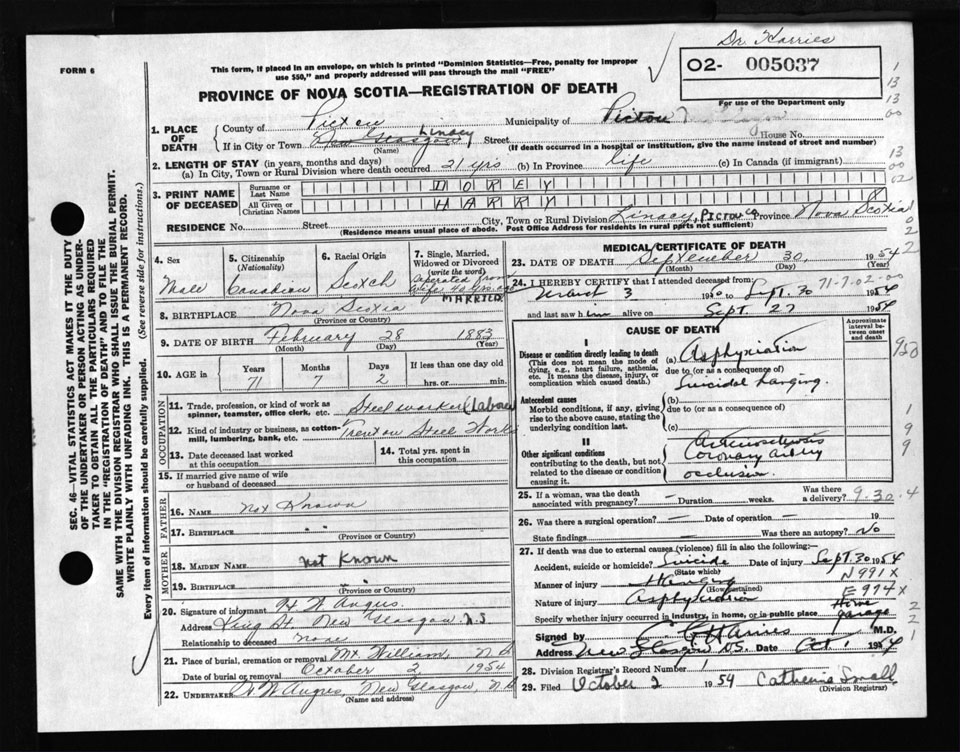 Dr Harries
FORM 6
This form, if placed in an envelope, on which is printed "Dominion Statistics—Free, penalty for improper
use $50," and properly addressed will pass through the mail "FREE"
02- 005037
PROVINCE OF NOVA SCOTIA—REGISTRATION OF DEATH
For use of the Department only
1. PLACE OF DEATH
County of Pictou Municipality of Pictou
If in City or Town New Glasgow Linacy Street House No.
(Name) (If death occurred in a hospital or institution, give the name instead of street and number)
2. LENGTH OF STAY (in years, months and days)
(a) In City, Town or Rural Division where death occurred 21 yrs (b) In Province life (c) In Canada (if immigrant)
3. PRINT NAME OF DECEASED
Surname or Last Name DOREY
All Given or Christian Names HARRY
RESIDENCE No. Street City, Town or Rural Division Linacy, PICTOU CO Province Nova Scotia
(Residence means usual place of abode. Post Office Address for residents in rural parts not sufficient)
4. Sex Male
5. Citizenship (Nationality) Canadian
6. Racial Origin Scotch
7. Single, Married, Widowed or Divorced (write the word)
Separated from wife 40 yrs.
MARRIED
8. BIRTHPLACE Nova Scotia
(Province or Country)
9. DATE OF BIRTH February 28 1883
(Month) (Day) (Year)
10. AGE in Years 71 Months 7 Days 2 If less than one day old hrs. or min.
OCCUPATION
11. Trade, profession, or kind of work as spinner, teamster, office clerk, etc. Steel worker (Labour
12. Kind of industry or business, as cotton-mill, lumbering, bank, etc. Trenton Steel Works
13. Date deceased last worked at this occupation
14. Total yrs. spent in this occupation
15. If married give name of wife or husband of deceased
FATHER
16. NAME Not Known
17. BIRTHPLACE " "
(Province or Country)
MOTHER
18. MAIDEN NAME Not Known
19. BIRTHPLACE " "
(Province or Country)
20. Signature of informant H W Angus.
Address King St. New Glasgow N.S
Relationship to deceased none
21. Place of burial, cremation or removal Mt. William, N.S
Date of burial or removal October 2 1954
22. UNDERTAKER W Angus, New Glasgow, N.S
(Name and address)
MEDICAL CERTIFICATE OF DEATH
23. DATE OF DEATH September 30 1954
(Month) (Day) (Year)
24. I HEREBY CERTIFY that I attended deceased from:
March 3 19 to Sept. 30 1954
71-7-02-00
and last saw him alive on Sept. 27 1954
CAUSE OF DEATH
Approximate interval between onset and death
I
Disease or condition directly leading to death
(This does not mean the mode of dying, e.g., heart failure, asthenia, etc. It means the disease, injury, or complication which caused death.)
(a) Asphyxiation
due to (or as a consequence of)
Suicidal hanging.
Antecedent causes
Morbid conditions, if any, giving rise to the above cause, stating the underlying condition last.
(b)
due to (or as a consequence of)
(c)
II
Other significant conditions
contributing to the death, but not related to the disease or condition causing it.
Arteriosclerosis
Coronary artery
occlusion.
25. If a woman, was the death associated with pregnancy? — Duration — weeks. Was there a delivery? 9.30.4
26. Was there a surgical operation? — Date of operation — 19
State findings — Was there an autopsy? No
27. If death was due to external causes (violence) fill in also the following:—
Accident, suicide or homicide? Suicide Date of injury Sept. 30 1954
(State which)
N991X
Manner of injury Hanging
(How sustained)
E974X
Nature of injury Asphyxiation
Specify whether injury occurred in industry, in home, or in public place Home garage
Signed by C. G. Harries M.D.
Address New Glasgow NS. Date Oct. 1 1954
28. Division Registrar's Record Number 1
29. Filed October 2 1954 Catherine Small
(Division Registrar)
SEC. 46—VITAL STATISTICS ACT MAKES IT THE DUTY
OF THE UNDERTAKER OR PERSON ACTING AS UNDER-
TAKER TO OBTAIN ALL THE PARTICULARS REQUIRED
IN THE "REGISTRATION OF DEATH" AND TO FILE THE
SAME WITH THE DIVISION REGISTRAR WHO SHALL ISSUE THE BURIAL PERMIT.
WRITE PLAINLY WITH UNFADING INK. THIS IS A PERMANENT RECORD.
Every item of information should be carefully supplied. (See reverse side for instructions.)